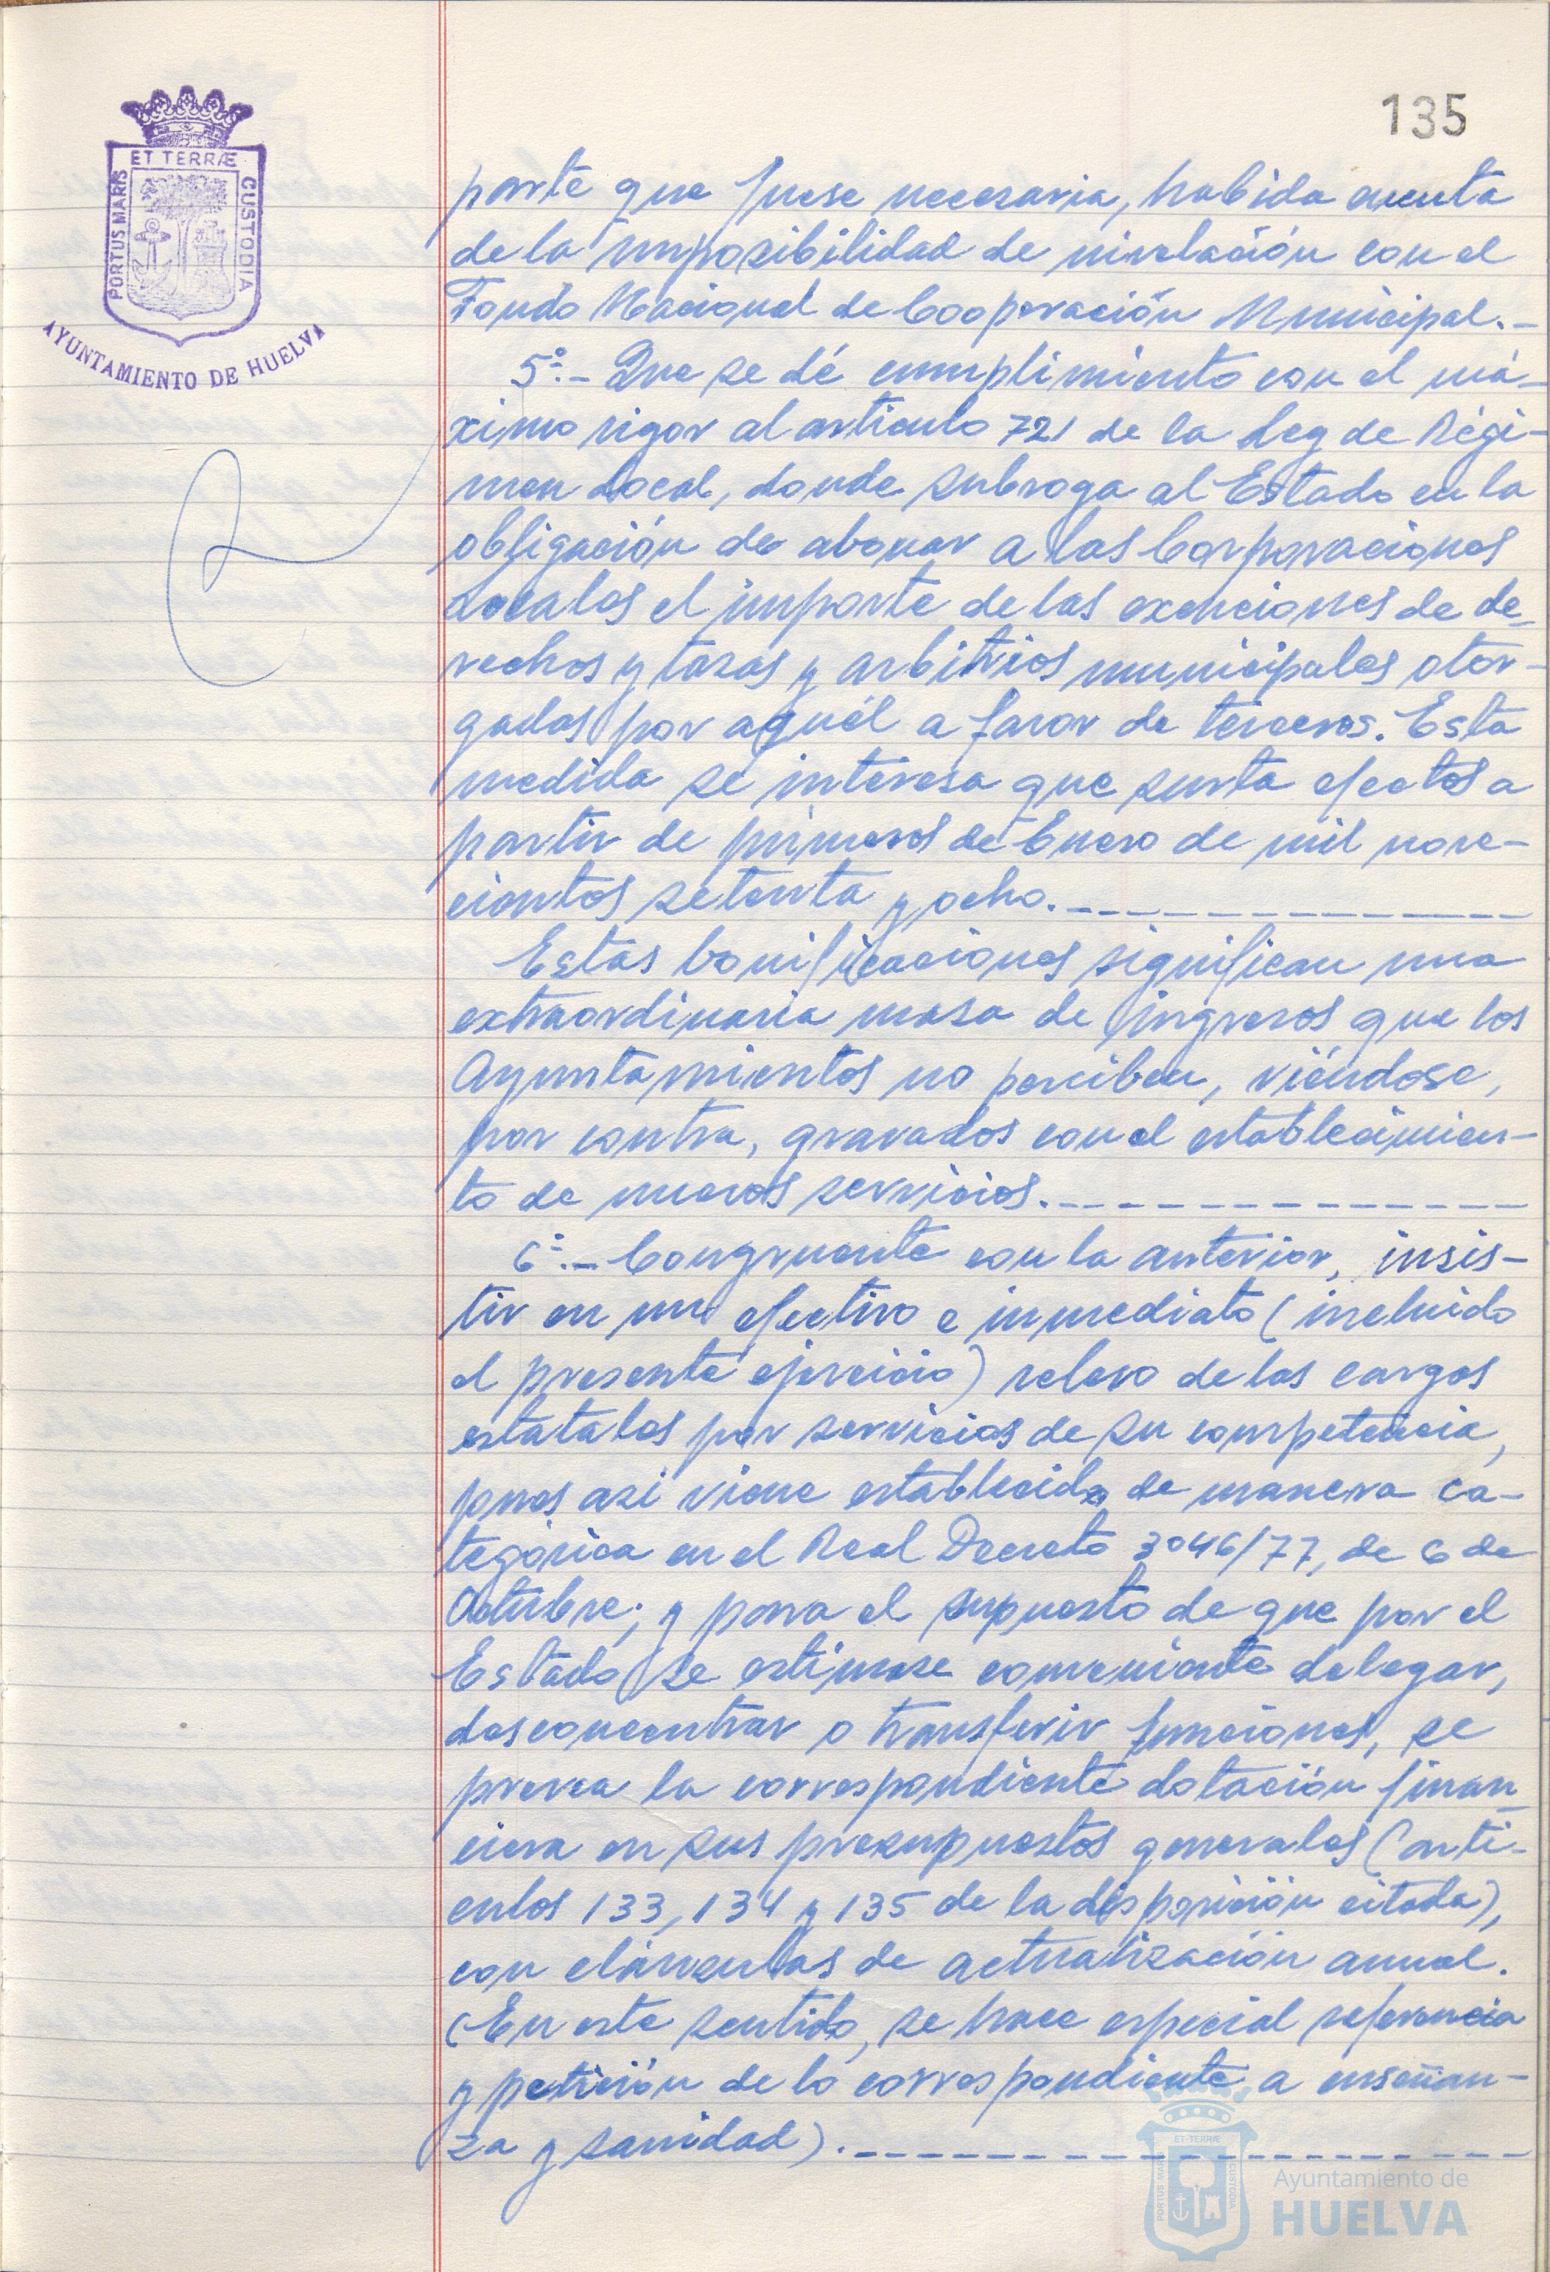 135
ET TERRÆ
PORTUS MARIS
CUSTODIA
AYUNTAMIENTO DE HUELVA
parte que fuese necesaria, habida cuenta
de la imposibilidad de nivelación con el
Fondo Nacional de Cooperación Municipal.-
5º.- Que se dé cumplimiento con el má-
ximo rigor al artículo 721 de la Ley de Régi-
men Local, donde subroga al Estado en la
obligación de abonar a las Corporaciones
Locales el importe de las exenciones de de-
rechos y tasas y arbitrios municipales otor-
gados por aquél a favor de terceros. Esta
medida se interesa que surta efectos a
partir de primeros de Enero de mil nove-
cientos setenta y ocho.
Estas bonificaciones significan una
extraordinaria masa de ingresos que los
Ayuntamientos no perciben, viéndose,
por contra, gravados con el establecimien-
to de nuevos servicios.
6º.- Congruente con la anterior, insis-
tir en un efectivo e inmediato (incluido
el presente ejercicio) relevo de las cargos
estatales por servicios de su competencia,
pues asi viene establecido de manera ca-
tegórica en el Real Decreto 3046/77, de 6 de
Octubre; y para el supuesto de que por el
Estado se estimase conveniente delegar,
desconcentrar o transferir funciones, se
prevea la correspondiente dotación finan-
ciera en sus presupuestos generales (arti-
culos 133, 134 y 135 de la disposición citada),
con cláusulas de actualización anual.
(En este sentido, se hace especial referencia
y petición de lo correspondiente a enseñan-
za y sanidad).
ET TERRÆ
PORTUS MARIS
CUSTODIA
Ayuntamiento de
HUELVA